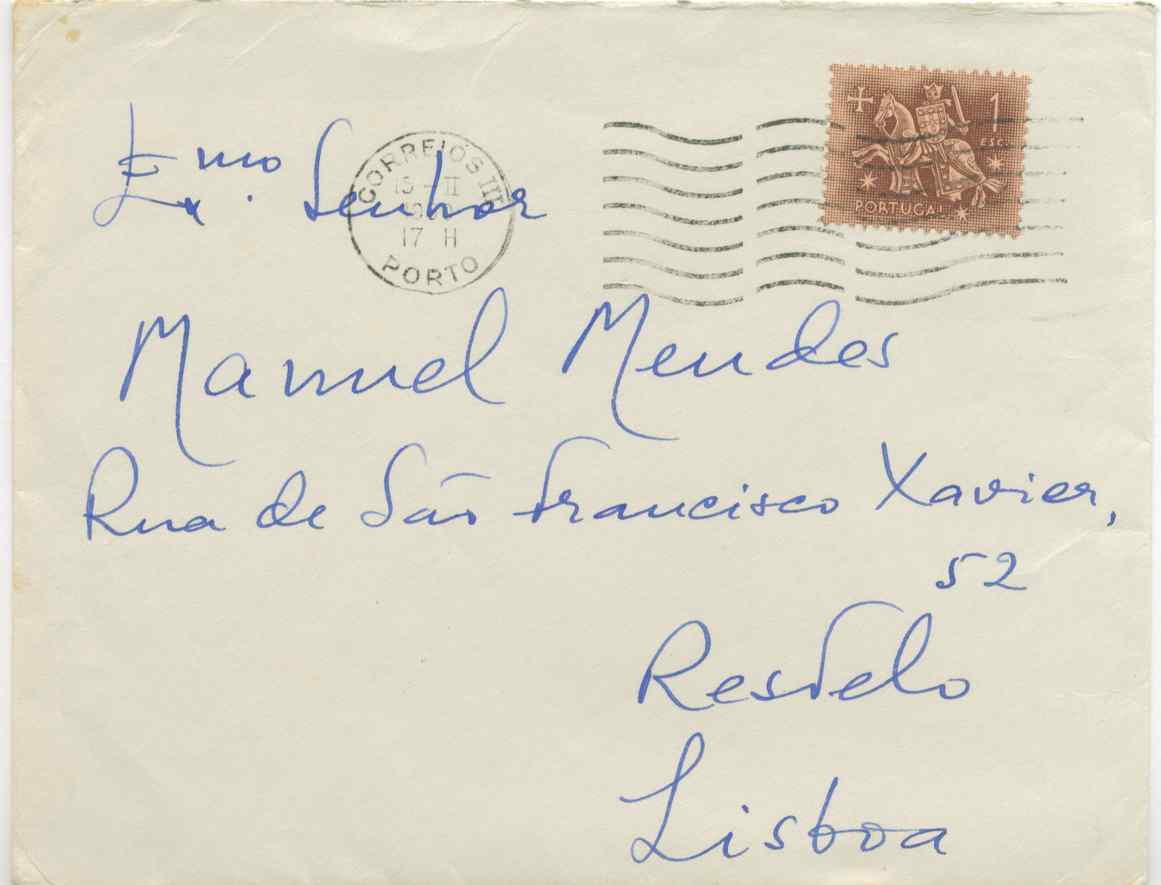 Ex.mo Senhor
CORREIOS III
17 H
PORTO
1
ESC.
PORTUGAL
Manuel Mendes
Rua de São Francisco Xavier,
52
Restelo
Lisboa